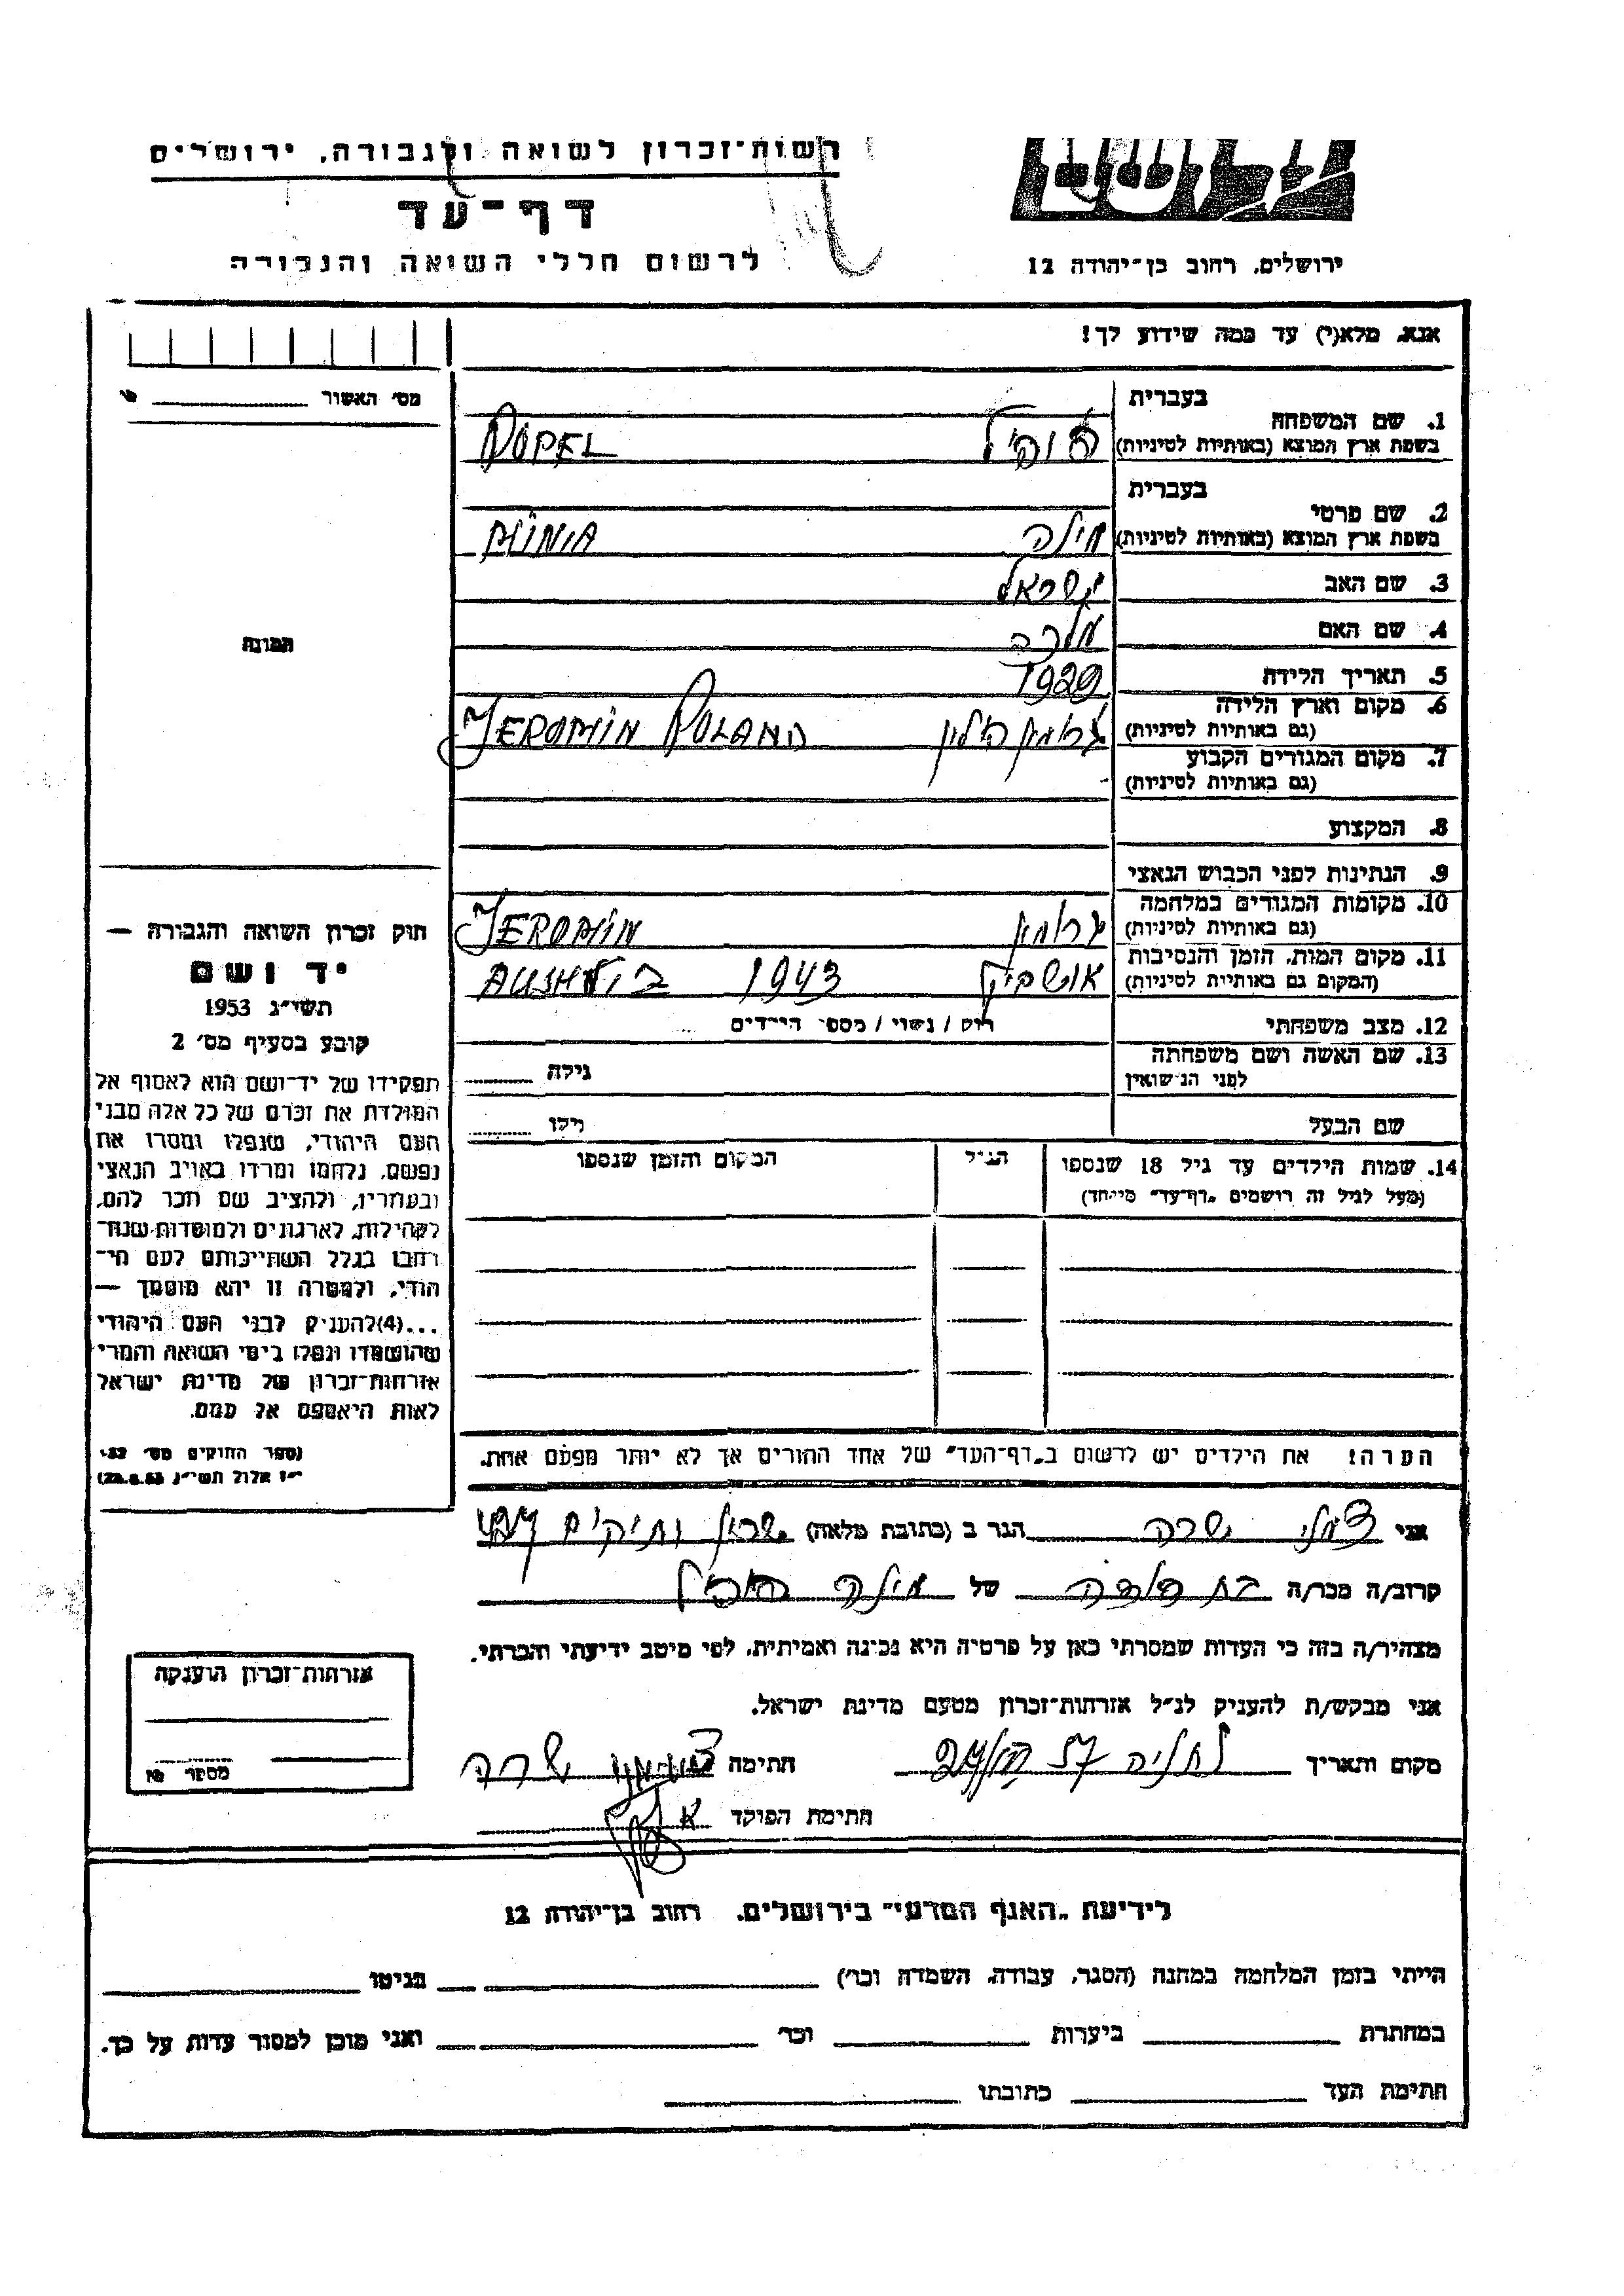 רשות־זכרון לשואה ולגבורה, ירושלים
דף־עד
לרשום חללי השואה והגבורה
ירושלים, רחוב בן־יהודה 12
אנא, מלא(י) עד כמה שידוע לך!
מס' האשור
1. שם המשפחה בעברית
בשפת ארץ המוצא (באותיות לטיניות) POPEL
2. שם פרטי בעברית
בשפת ארץ המוצא (באותיות לטיניות) MINIA
3. שם האב ישראל
4. שם האם מלכה
5. תאריך הלידה 1929
6. מקום וארץ הלידה
(גם באותיות לטיניות) JEROMIN POLAND
7. מקום המגורים הקבוע
(גם באותיות לטיניות)
8. המקצוע
9. הנתינות לפני הכבוש הנאצי
10. מקומות המגורים במלחמה
(גם באותיות לטיניות) JEROMIN
11. מקום המות, הזמן והנסיבות
(המקום גם באותיות לטיניות) 1943
12. מצב משפחתי רוק / נשוי / מספר הילדים
13. שם האשה ושם משפחתה
לפני הנישואין גילה
שם הבעל גילו
14. שמות הילדים עד גיל 18 שנספו הגיל המקום והזמן שנספו
(מעל לגיל זה רושמים „דף־עד" מיוחד)
הערה! את הילדים יש לרשום ב„דף־העד" של אחד ההורים אך לא יותר מפעם אחת.
תמונה
חוק זכרון השואה והגבורה —
יד ושם
תשי"ג 1953
קובע בסעיף מס' 2
תפקידו של יד־ושם הוא לאסוף אל
המולדת את זכרם של כל אלה מבני
העם היהודי, שנפלו ומסרו את
נפשם, נלחמו ומרדו באויב הנאצי
ובעוזריו, ולהציב שם וזכר להם,
לקהילות, לארגונים ולמוסדות שנח־
רבו בגלל השתייכותם לעם הי־
הודי, ולמטרה זו יהא מוסמך —
...(4)להעניק לבני העם היהודי
שהושמדו ונפלו בימי השואה והמרי
אזרחות־זכרון של מדינת ישראל
לאות היאספם אל עמם.
(ספר החוקים מס' 132,
י"ז אלול תשי"ג 28.8.53)
אני שרה הגר ב (כתובת מלאה)
קרוב/ה מכר/ה בת דודה של
מצהיר/ה בזה כי העדות שמסרתי כאן על פרטיה היא נכונה ואמיתית, לפי מיטב ידיעתי והכרתי.
אני מבקש/ת להעניק לנ"ל אזרחות־זכרון מטעם מדינת ישראל.
מקום ותאריך חתימה שרה
חתימת הפוקד
אזרחות־זכרון הוענקה
מספר
לידיעת „האגף המדעי" בירושלים, רחוב בן־יהודה 12
הייתי בזמן המלחמה במחנה (הסגר, עבודה, השמדה וכו') בגיטו
במחתרת ביערות וכו' ואני מוכן למסור עדות על כך.
חתימת העד כתובתו